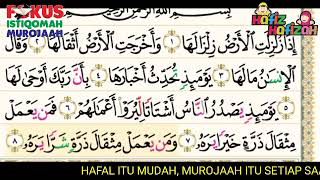 FOKUS
ISTIQOMAH
MUROJAAH
Hafiz
Hafizah
بِسْمِ اللَّهِ الرَّحْمَٰنِ الرَّحِيمِ
إِذَا زُلْزِلَتِ الْأَرْضُ زِلْزَالَهَا ١ وَأَخْرَجَتِ الْأَرْضُ أَثْقَالَهَا ٢ وَقَالَ
الْإِنسَٰنُ مَا لَهَا ٣ يَوْمَئِذٍ تُحَدِّثُ أَخْبَارَهَا ٤ بِأَنَّ رَبَّكَ أَوْحَىٰ لَهَا
٥ يَوْمَئِذٍ يَصْدُرُ النَّاسُ أَشْتَاتًا لِّيُرَوْا أَعْمَٰلَهُمْ ٦ فَمَن يَعْمَلْ
مِثْقَالَ ذَرَّةٍ خَيْرًا يَرَهُۥ ٧ وَمَن يَعْمَلْ مِثْقَالَ ذَرَّةٍ شَرًّا يَرَهُۥ ٨
HAFAL ITU MUDAH, MUROJAAH ITU SETIAP SAA